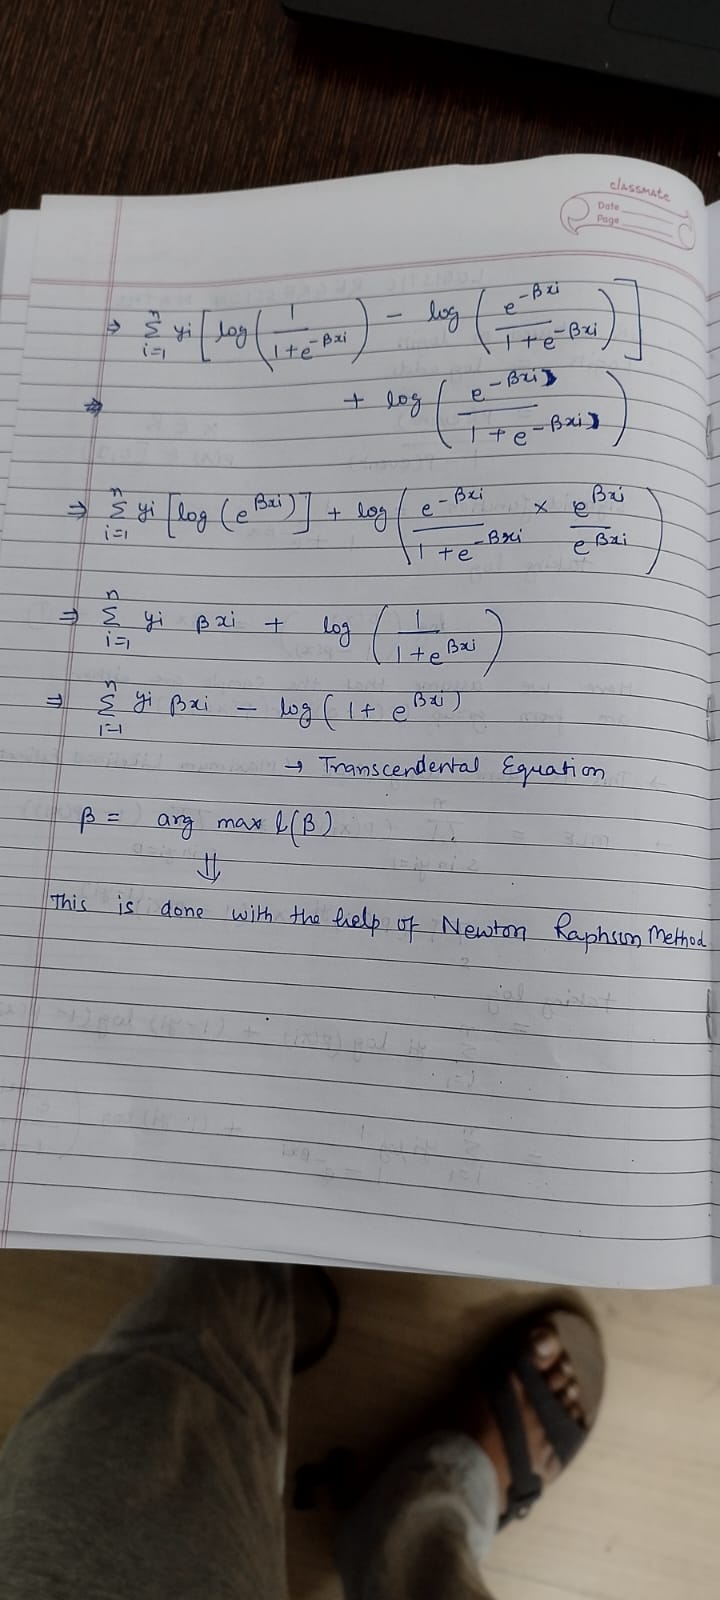 classmate
Date
Page
⇒ n Σ i=1 yi [ log ( 1 / 1+e^-βxi ) - log ( e^-βxi / 1+e^-βxi ) ]
⇒ + log ( e^-βxi / 1+e^-βxi )
⇒ n Σ i=1 yi [ log ( e^βxi ) ] + log ( e^-βxi / 1+e^-βxi × e^βxi / e^βxi )
⇒ n Σ i=1 yi βxi + log ( 1 / 1+e^βxi )
⇒ n Σ i=1 yi βxi - log ( 1+ e^βxi )
→ Transcendental Equation
β = arg max l(β)
⇓
This is done with the help of Newton Raphson Method